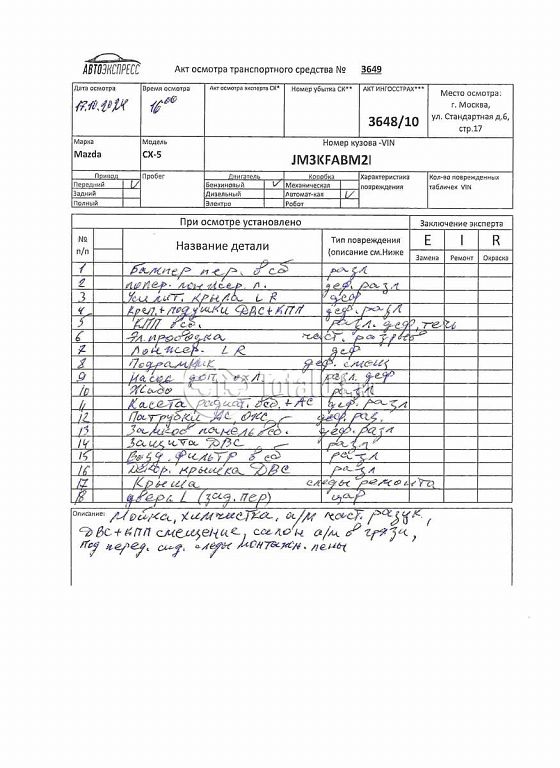 АВТОЭКСПРЕСС
Акт осмотра транспортного средства № 3649
Дата осмотра Время осмотра Акт осмотра эксперта СК* Номер убытка СК** АКТ ИНГОССТРАХ*** Место осмотра:
17.10.2024 16 00 3648/10 г. Москва,
ул. Стандартная д.6,
стр.17
Марка Модель Номер кузова -VIN
Mazda CX-5 JM3KFABM2I
Привод Пробег Двигатель Коробка Характеристика Кол-во поврежденных
Передний V Бензиновый V Механическая повреждения табличек VIN
Задний Дизельный Автомат-кая V
Полный Электро Робот
При осмотре установлено Заключение эксперта
№ Название детали Тип повреждения E I R
п/п (описание см.Ниже Замена Ремонт Окраска
1 Бампер пер. в сб разл
2 попер. лонжер. л. деф. разл
3 Усилит. крыла L R деф
4 креп.+подушки ДВС+КПП деф. разл
5 КПП в сб. разл. деф, течь
6 Эл проводка част. разрыв
7 Лонжер. L R деф
8 Подрамник деф. смещ
9 насос доп. охл разл. деф
10 Жабо разл
11 Касета радиат. в сб. + АС деф. разл
12 Патрубки АС ОЖС деф. раз.
13 Замков панель в сб. деф. разл
14 Защита ДВС разл
15 Возд. фильтр в сб разл
16 Декор. крышка ДВС разл
17 Крыша следы ремонта
18 дверь L (зад. пер) цар
Описание: Мойка, химчистка, а/м част. разук.,
ДВС+КПП смещение, салон а/м в грязи,
под перед. сид. следы монтажн. пены